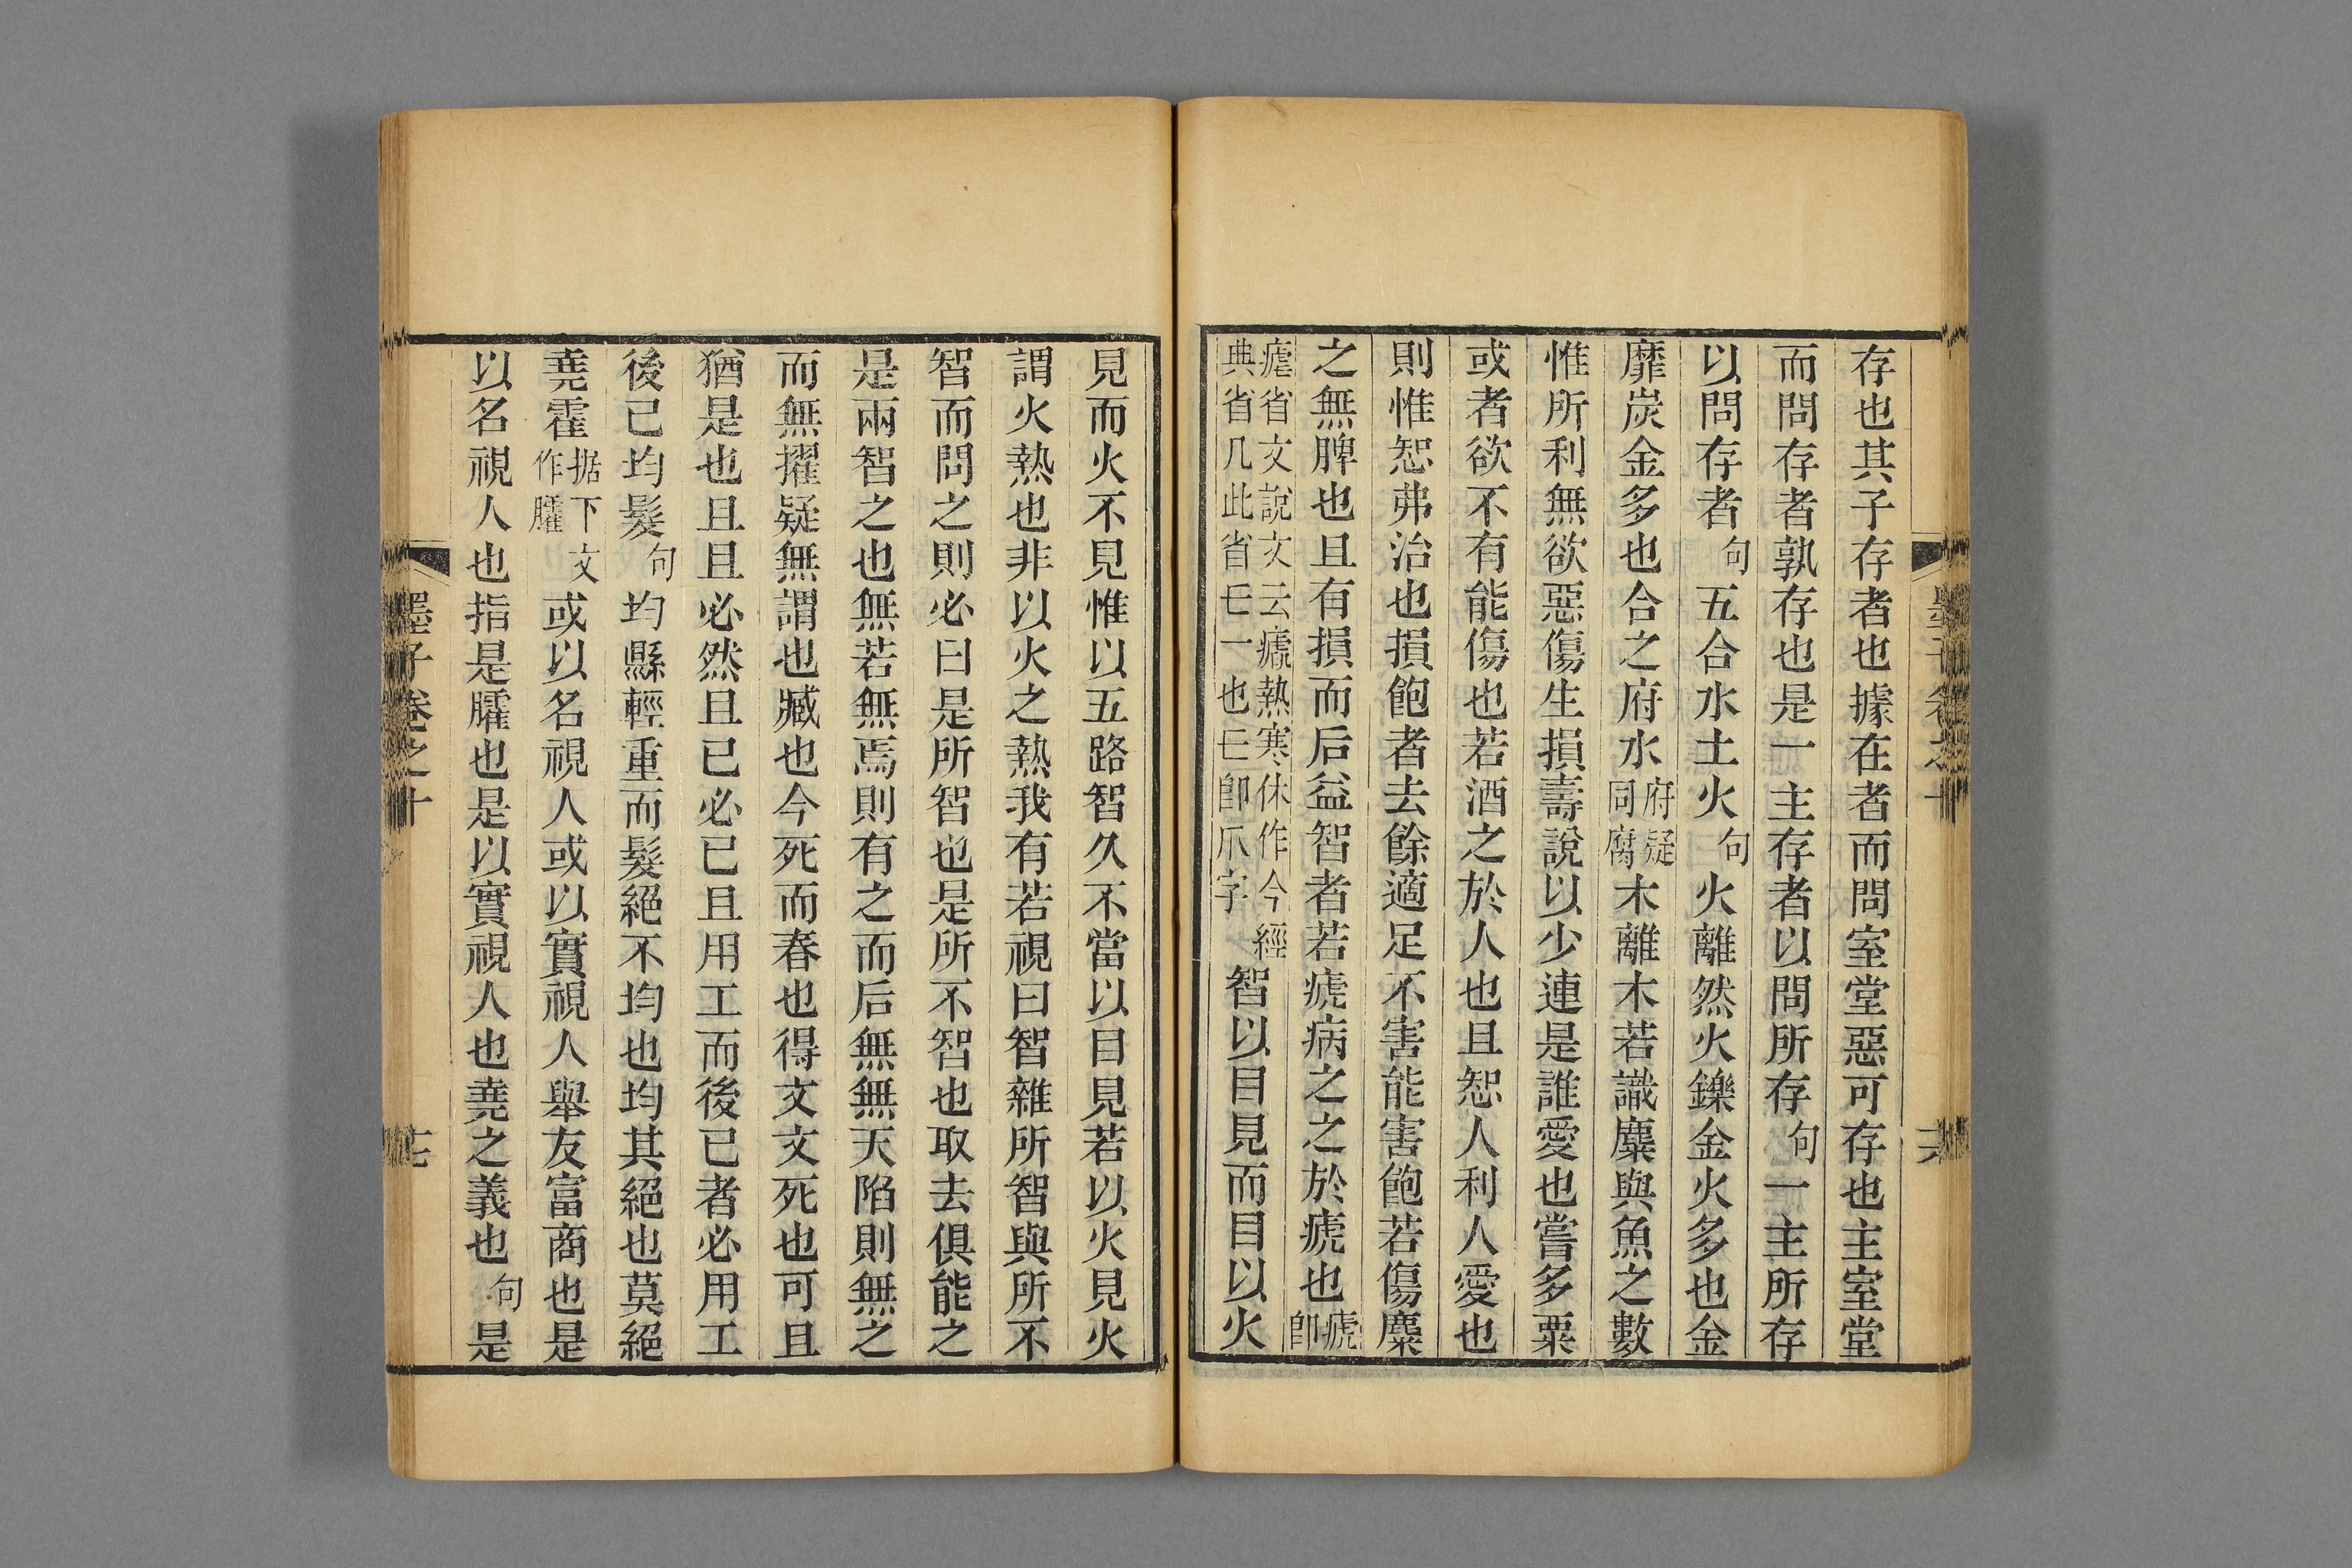 存也其子存者也據在者而問室堂惡可存也主室堂
而問存者孰存也是一主存者以問所存句一主所存
以問存者句五合水土火句火離然火鑠金火多也金
靡炭金多也合之府水府疑同腐木離木若識麋與魚之數
惟所利無欲惡傷生損壽說以少連是誰愛也嘗多粟
或者欲不有能傷也若酒之於人也且恕人利人愛也
則惟恕弗治也損飽者去餘適足不害能害飽若傷麋
之無脾也且有損而后益智者若瘧病之之於瘧也瘧即
瘧省文說文云瘧熱寒休作今經
典省几此省㠪一也㠪即爪字智以目見而目以火
見而火不見惟以五路智久不當以目見若以火見火
謂火熱也非以火之熱我有若視曰智雜所智與所不
智而問之則必曰是所智也是所不智也取去俱能之
是兩智之也無若無焉則有之而后無無天陷則無之
而無擢疑無謂也臧也今死而春也得文文死也可且
猶是也且且必然且已必已且用工而後已者必用工
後己均髮句均縣輕重而髮絕不均也均其絕也莫絕
堯霍据下文作臛或以名視人或以實視人舉友富商也是
以名視人也指是臛也是以實視人也堯之義也句是
墨子卷之十